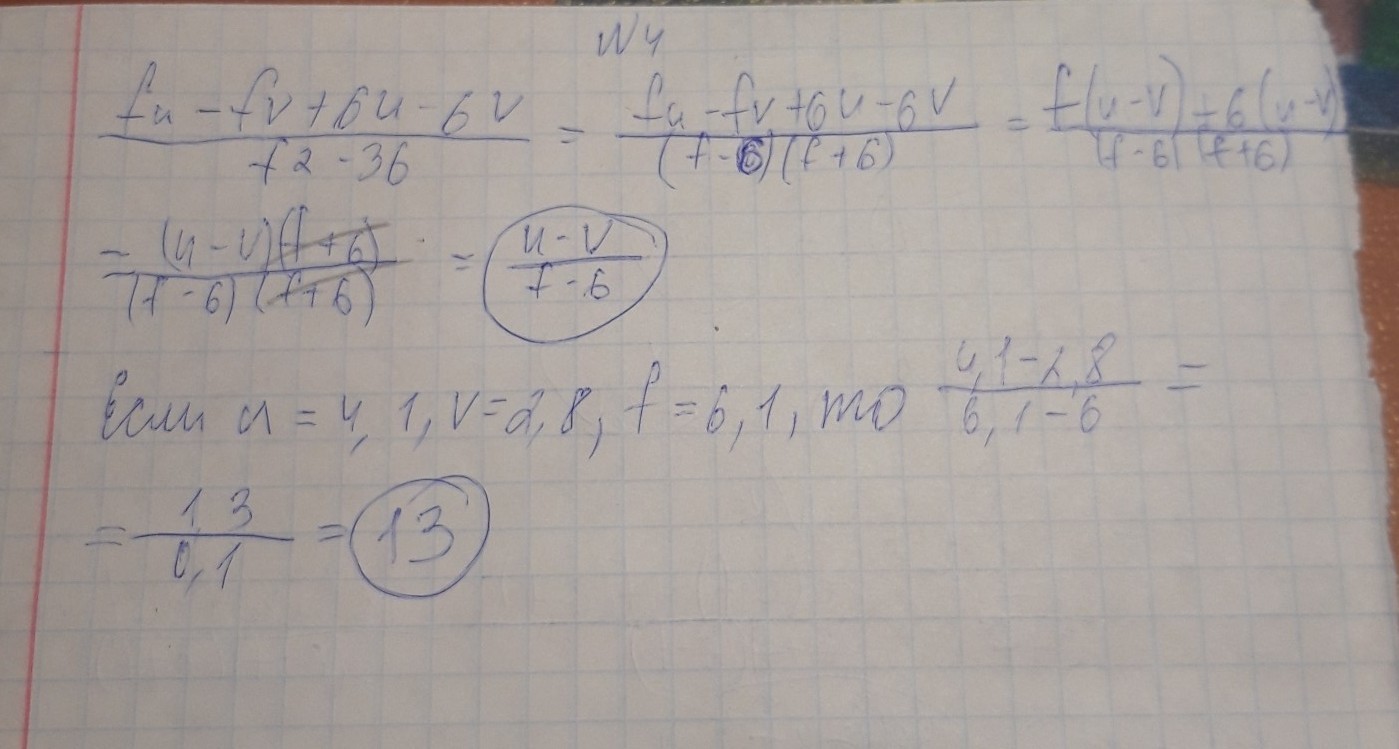 N4
(fu - fv + 6u - 6v)/(f2 - 36) = (fu - fv + 6u - 6v)/((f - 6)(f + 6)) = (f(u - v) + 6(u - v))/((f - 6)(f + 6))
= ((u - v)(f + 6))/((f - 6)(f + 6)) = (u - v)/(f - 6)
Если u = 4,1, v = 2,8, f = 6,1, то (4,1 - 2,8)/(6,1 - 6) =
= (1,3)/(0,1) = 13